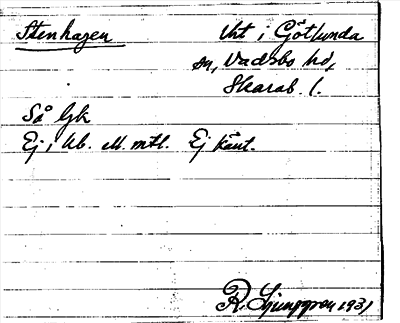 Stenhagen
Uht i Götlunda
sn, Vadsbo hd,
Skarab. l.
Så Gk
Ej i Ub. el. mtl. Ej känt.
R. Ljunggren 1931